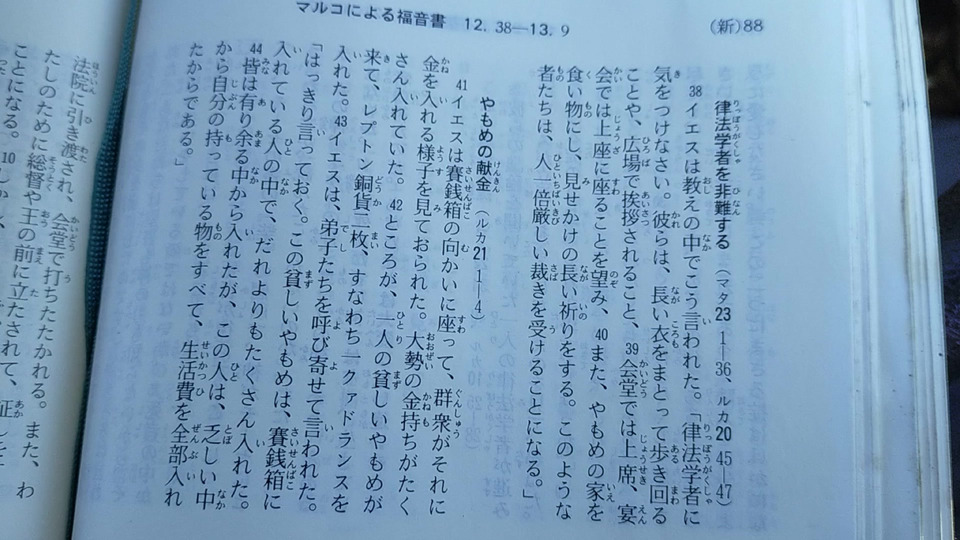 マルコによる福音書　12. 38―13. 9
(新)88
律法学者を非難する（マタ23 1―36、ルカ20 45―47）
38イエスは教えの中でこう言われた。「律法学者に
気をつけなさい。彼らは、長い衣をまとって歩き回る
ことや、広場で挨拶されること、39会堂では上席、宴
会では上座に座ることを望み、40また、やもめの家を
食い物にし、見せかけの長い祈りをする。このような
者たちは、人一倍厳しい裁きを受けることになる。」
やもめの献金（ルカ21 1―4）
41イエスは賽銭箱の向かいに座って、群衆がそれに
金を入れる様子を見ておられた。大勢の金持ちがたく
さん入れていた。42ところが、一人の貧しいやもめが
来てレプトン銅貨二枚、すなわち一クァドランスを
入れた。43イエスは、弟子たちを呼び寄せて言われた。
「はっきり言っておく。この貧しいやもめは、賽銭箱に
入れている人の中で、だれよりもたくさん入れた。
44皆は有り余る中から入れたが、この人は、乏しい中
から自分の持っている物をすべて、生活費を全部入れ
たからである。」
法院に引き渡され、会堂で打ちたたかれる。また、わ
たしのために総督や王の前に立たされて、証しをす
ことになる。10しか